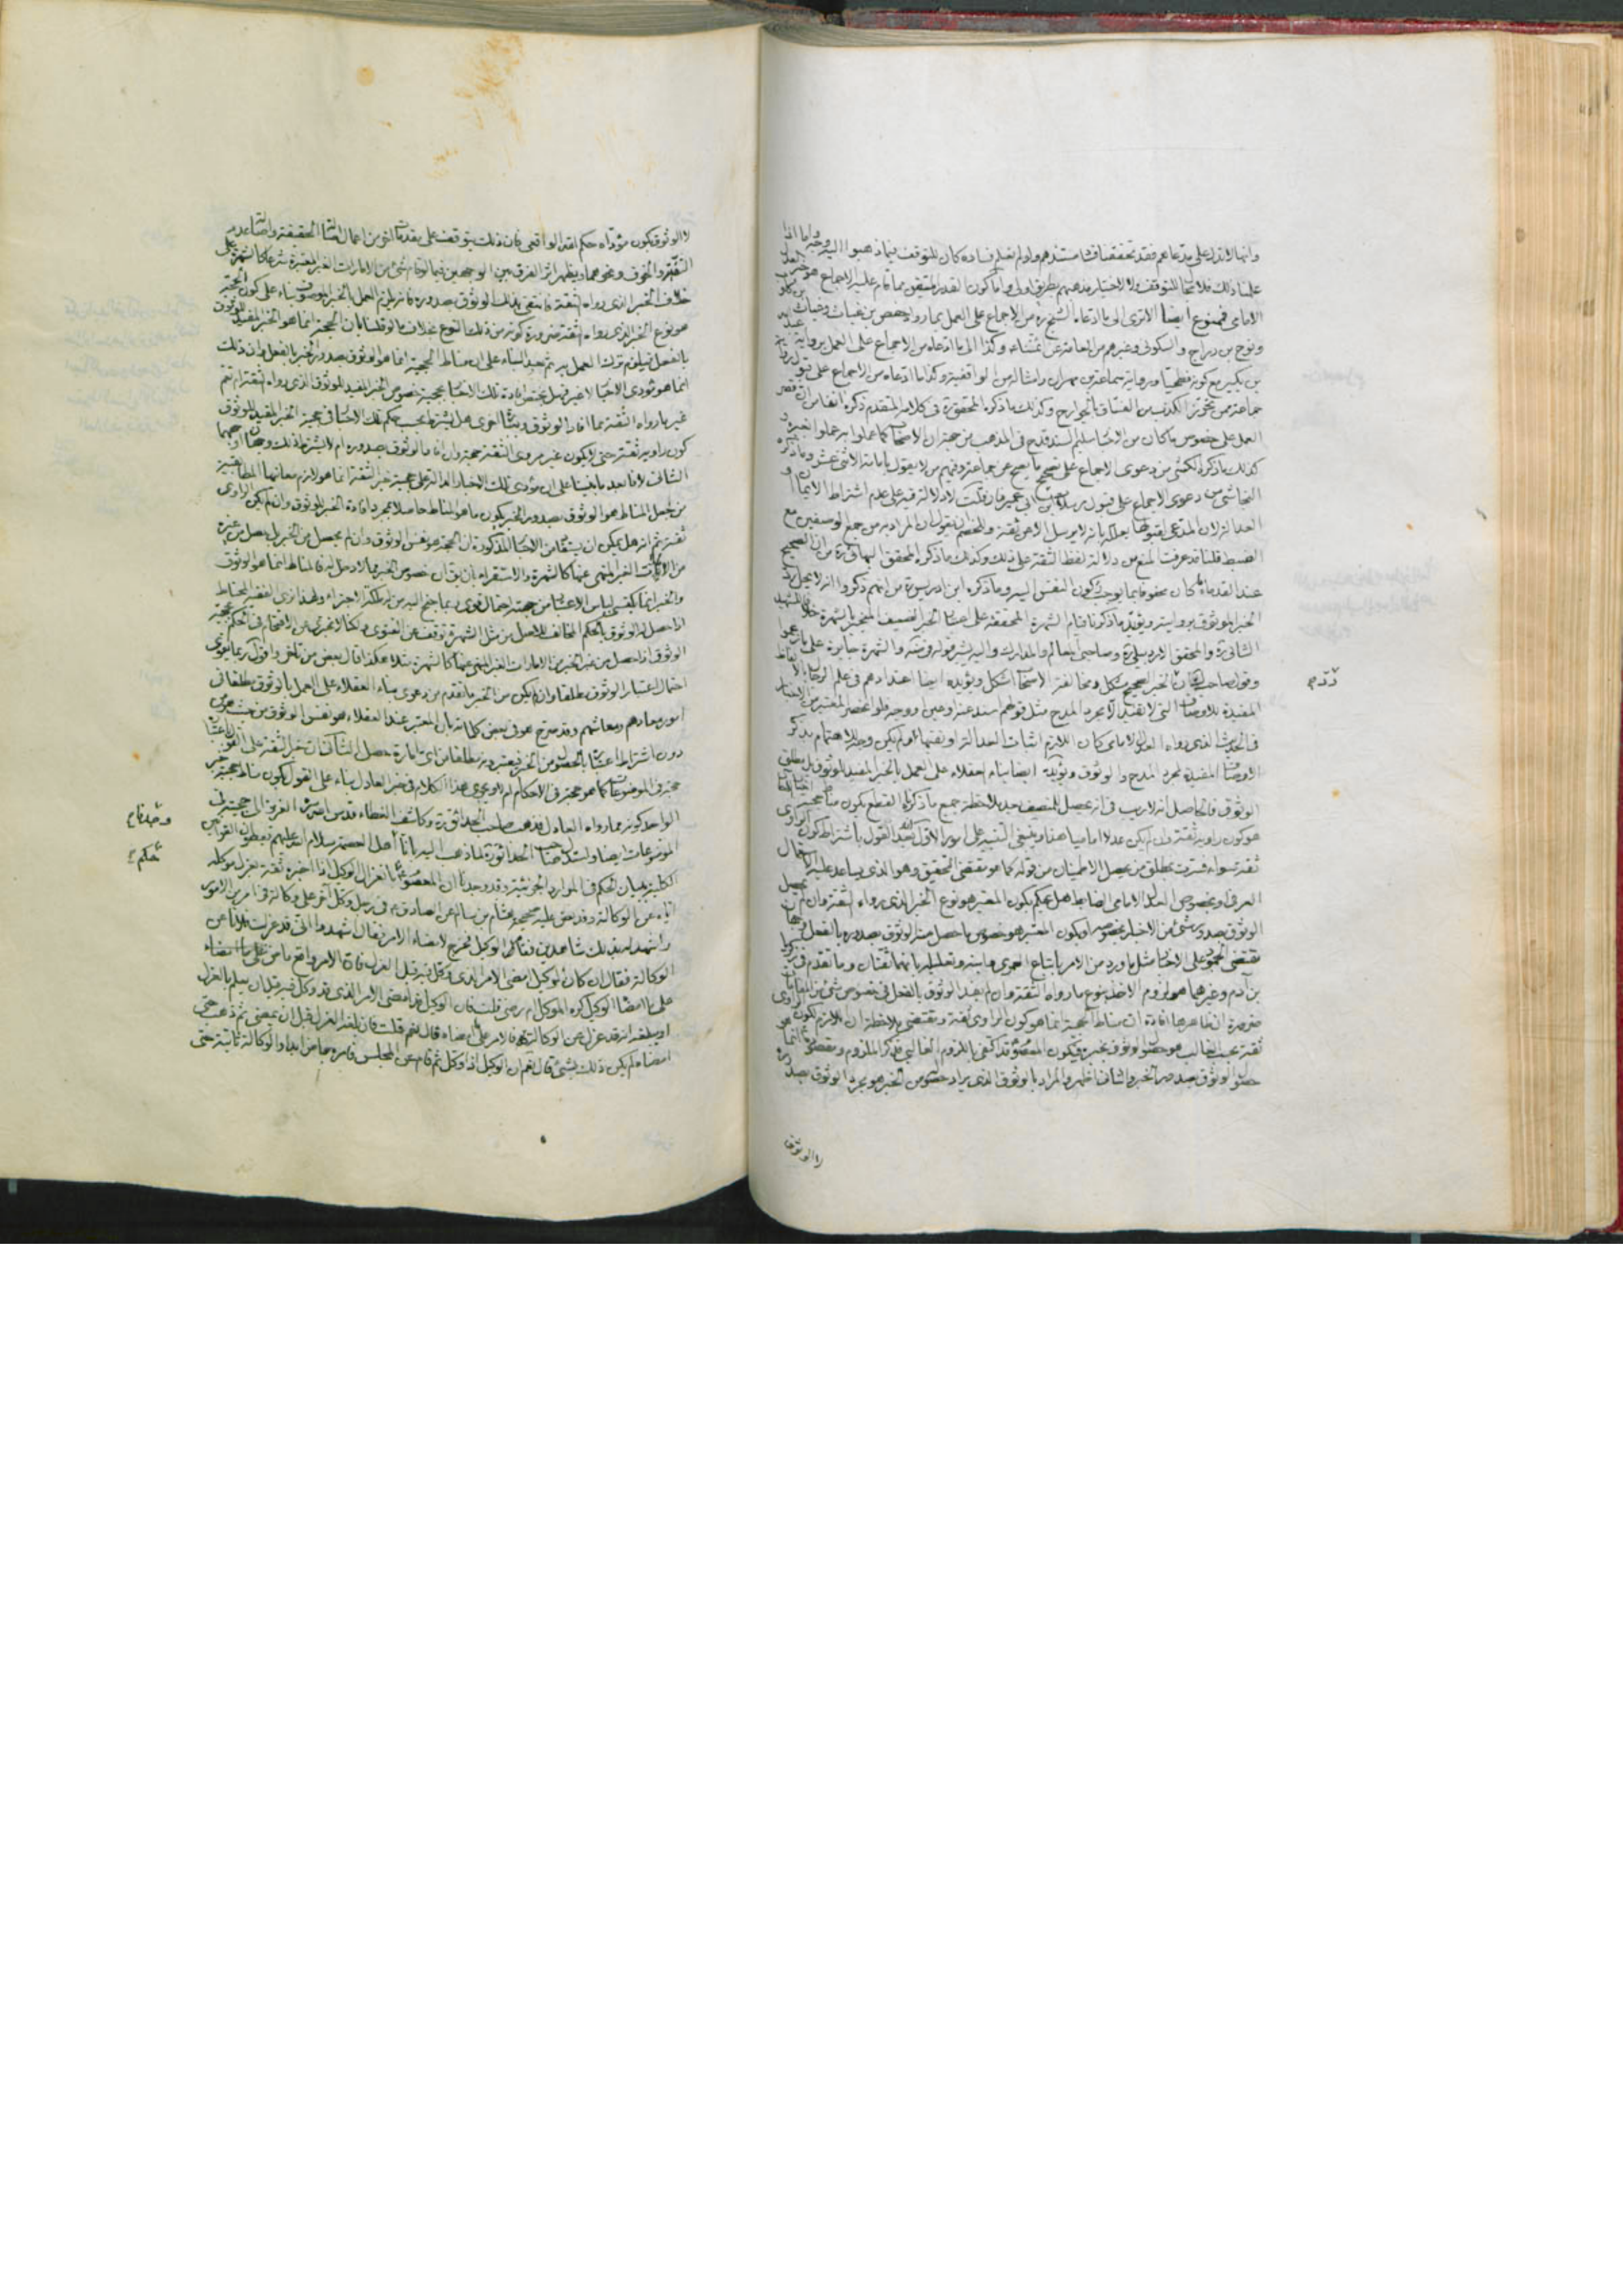 وانها لا تدل على مدعاهم فقد تحققنا فساد مستندهم ولو لم نعلم فساده كان للتوقف فيما ذهبوا اليه وجه واما اذا
علمنا ذلك فلا معنى للتوقف ولا لاختيار مذهبهم بطريق اولى واما كون القدر المتيقن مما قام عليه الاجماع هو خبر العدل
الامامى فممنوع ايضا الا ترى الى ما ادعاه الشيخ ره من الاجماع على العمل بما رواه حفص بن غياث وغياث بن كلوب
ونوح بن دراج والسكونى وغيرهم من العامة عن ائمتنا ع وكذا الى ما ادعاه من الاجماع على العمل برواية عبد الله
بن بكير مع كونه فطحيا ورواية سماعة بن مهران وامثاله من الواقفية وكذا ما ادعاه من الاجماع على قبول رواية
جماعة ممن تحرز الكذب من الفساق بالجوارح وكذلك ما ذكره المحقق ره فى كلامه المتقدم ذكره انفا من ان قصر
العمل على خصوص ما كان من الاخبار سليم السند قدح فى المذهب من جهة ان الاصحاب كما عملوا به عملوا بغيره و
كذلك ما ذكره الكشى من دعوى الاجماع على تصحيح ما يصح عن جماعة وفيهم من لا يقول بامامة الاثنى عشر وما ذكره
النجاشى من دعوى الاجماع على قبول مراسيل ابن ابى عمير فان قلت لا دلالة فيه على عدم اشتراط الايمان و
العدالة لان المدعى لقبولها علله بانه لا يرسل الا عن ثقة وللخصم ان يقول ان المراد به من جمع الوصفين مع
الضبط قلنا قد عرفت المنع من دلالة لفظ الثقة على ذلك وكذلك ما ذكره المحقق البهائى ره من ان الصحيح
عند القدماء ما كان محفوفا بما يوجب ركون النفس اليه وما ذكره ابن ادريس ره من انهم ذكروا انه لا يحل رد
الخبر الموثوق بروايته ويؤيد ما ذكرنا قيام الشهرة المحققة على اعتبار الخبر الضعيف المنجبر بالشهرة خلافا للشهيد
الثانى ره والمحقق الاردبيلى ره وصاحبى المعالم والمدارك واليه يشير قوله فى ضمنه والشهرة جابرة على ما زعموا
وقول صاحب ان الخبر الصحيح مشكل ومخالفة الاصحاب اشكل ويؤيده ايضا اعتدادهم فى علم الرجال بالالفاظ
المفيدة للاوصاف التى لا تفيد الا مجرد المدح مثل قولهم سند عنه وعين ووجه فلو انحصر المعتبر من الاخبار
فى الحديث الذى رواه العدل الامامى كان اللازم اثبات العدالة او نفيها ولم يكن وجه للاهتمام بذكر
الاوصاف المفيدة لمجرد المدح والوثوق ويؤيده ايضا بناء العقلاء على العمل بالخبر المفيد للوثوق بل مطلق
الوثوق فالحاصل انه لا ريب فى انه يحصل للمنصف بعد ملاحظة جميع ما ذكرناه القطع بكون مناط حجية
هو كون راويه ثقة وان لم يكن عدلا اماميا هذا وينبغى التنبيه على امور الاول انه بعد القول باشتراط كون الراوى
ثقة سواء فسرت بمطلق من يحصل الاطمينان من قوله كما هو مقتضى التحقيق وهو الذى يساعد عليه
العرف او بخصوص العدل الامامى الضابط هل يحكم بكون المعتبر هو نوع الخبر الذى رواه الثقة وان لم يحصل
الوثوق بصدور شئ من الاخبار بخصوصه او بكون المعتبر هو خصوص ما حصل منه الوثوق بصدوره بالفعل وجهان
مقتضى الجمود على الاخبار مثل ما ورد من الامر باتباع العمرى وابنه وتعليله بانهما ثقتان وما تقدم فى زكريا
بن آدم وغيرهما هو لزوم الاخذ بنوع ما رواه الثقة وان لم يفد الوثوق بالفعل فى خصوص شئ من المقامات
ضرورة ان ظاهرها افادة ان مناط الحجية انما هو كون الراوى ثقة ومقتضى ملاحظة ان اللازم لكون الراوى
ثقة بحسب الغالب هو حصول الوثوق بخبره فيكون المقصود قد اكتفى باللزوم الغالبى فذكر الملزوم ومقصوده انما هو
حصول الوثوق بصدور الخبر والثانى اظهر والمراد بالوثوق الذى يراد حصوله من الخبر هو مجرد الوثوق بصدوره
لا الوثوق
قدّه
لا الوثوق بكون مؤداه حكم الله الواقعى فان ذلك يتوقف على مقدمات اخر من اعمال اصالة الحقيقة واصالة عدم
التقية والخوف ونحوهما ويظهر اثر الفرق بين الوجهين فيما لو قام شئ من الامارات الغير المعتبرة شرعا كالشهرة على
خلاف الخبر الذى رواه الثقة فانتفى بذلك الوثوق بصدوره فانه يلزم العمل بالخبر الموصوف بناء على كون الحجية
هو نوع الخبر الذى رواه الثقة ضرورة كونه من ذلك النوع بخلاف ما لو قلنا بان الحجية انما هو الخبر المفيد للوثوق
بالفعل فيلزم ترك العمل به ثم بعد البناء على ان مناط الحجية انما هو الوثوق بصدور الخبر بالفعل وان ذلك
انما هو مؤدى الاخبار لا غير فهل يختص افادة تلك الاخبار بحجية خصوص الخبر المفيد للوثوق الذى رواه الثقة ام تعم
غير ما رواه الثقة مما افاد الوثوق وبعبارة اخرى هل يشترط بحسب حكم تلك الاخبار فى حجية الخبر المفيد للوثوق
كون راويه ثقة حتى لا يكون غير مروى الثقة حجة وان افاد الوثوق بصدوره ام لا يشترط ذلك وجهان اوجههما
الثانى لانا بعد ما بنينا على ان مؤدى تلك الاخبار الدالة على حجية خبر الثقة انما هو لازم معانيها المطابقية
من جعل المناط هو الوثوق بصدور الخبر يكون ما هو المناط حاصلا بمجرد افادة الخبر الوثوق وان لم يكن الراوى
ثقة ثم انه هل يمكن ان يستفاد من الاخبار المذكورة ان الحجة هو نفس الوثوق وان لم يحصل من الخبر بل حصل من غيره
من الامارات الغير المنهى عنها كالشهرة والاستقراء بان يقال ان خصوص الخبر مما لا دخل له فالمناط انما هو الوثوق
والخبر انما يكتسى لباس الاعتبار من جهته احتمال قوى ربما جنح اليه من له ملكة الاجزاء ولهذا نرى الفقيه المحتاط
اذا حصل له الوثوق بالحكم المخالف للاصل من مثل الشهرة توقف عن الفتوى ولكنا لا نجترئ على الاقتحام فى الحكم بحجية
الوثوق اذا حصل من غير الخبر من الامارات الغير المنهى عنها كالشهرة مثلا هكذا قال بعض من تاخر واقول ربما يقوى
احتمال اعتبار الوثوق مطلقا وان لم يكن من الخبر ما تقدم من دعوى بناء العقلاء على العمل بالوثوق مطلقا فى
امور معادهم ومعاشهم وقد صرح هو فى بعض كلماته بان المعتبر عند العقلاء هو نفس الوثوق من حيث هو من
دون اشتراط اعتبار بالحصول من الخبر فيعتبرونه مطلقا من اى امارة حصل الثانى ان خبر الثقة على القول باعتباره
حجة فى الموضوعات كما هو حجة فى الاحكام ام لا ويجرى هذا الكلام فى خبر العادل بناء على القول بكون مناط حجية خبر
الواحد كونه مما رواه العادل فذهب صاحب الحدائق ره وكاشف الغطاء قدس سره الغروى الى حجيته فى
الموضوعات ايضا واستدل صاحب الحدائق ره لما ذهب اليه بانا اهل العصمة سلام الله عليهم يعطون القواعد
الكلية ببيان الحكم فى الموارد الجزئية وقد وجدنا ان المعصوم ع بانعزال الوكيل اذا اخبره ثقة بعزل موكله
اياه عن الوكالة وقد نص عليه صحيحة هشام بن سالم عن الصادق ع فى رجل وكل آخر على وكالة فى امر من الامور
واشهد له بذلك شاهدين فقام الوكيل فخرج لامضاء الامر فقال اشهدوا انى قد عزلت فلانا عن
الوكالة فقال ان كان الوكيل امضى الامر الذى وكل فيه قبل العزل فان الامر واقع ماض على ما امضاه
الوكيل كره الموكل ام رضى قلت فان الوكيل قد امضى الامر الذى قد وكل فيه قبل ان يعلم بالعزل
او يبلغه انه قد عزل عن الوكالة فالامر على ما امضاه قال نعم قلت فان بلغه العزل قبل ان يمضى ثم ذهب حتى
امضاه لم يكن ذلك بشئ قال نعم ان الوكيل اذا وكل ثم قام عن المجلس فامره ماض ابدا والوكالة ثابتة حتى